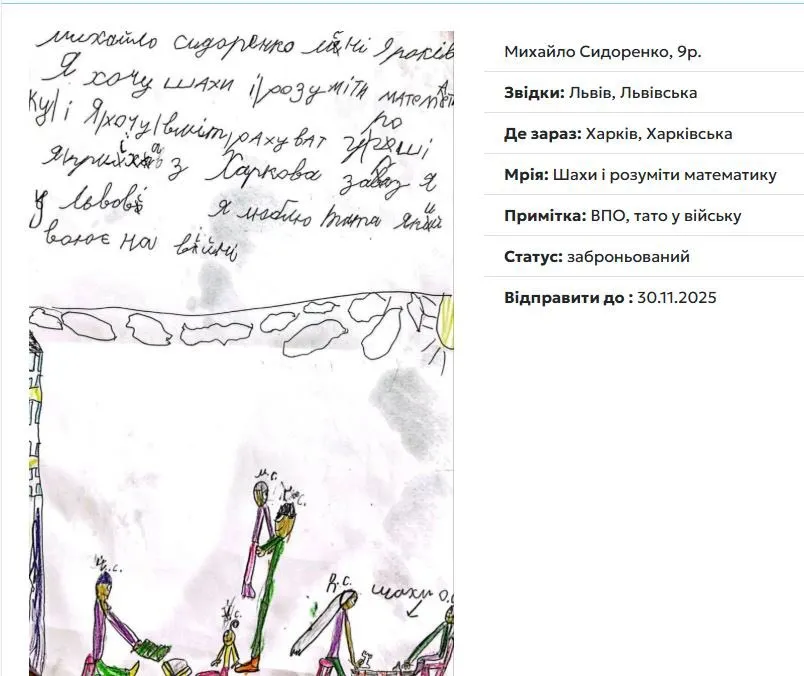 михайло сидоренко мені 9 років
Я хочу шахи і розуміти матемАти
ку і Я хочу вміти рахуват гроші
Я приїхав з Харкова зараз Я
у Львові я люблю тата Який
воює на війні
м.с.
с.
и.с.
с.
Я.с.
шахи о.с
Михайло Сидоренко, 9р.
Звідки: Львів, Львівська
Де зараз: Харків, Харківська
Мрія: Шахи і розуміти математику
Примітка: ВПО, тато у війську
Статус: заброньований
Відправити до : 30.11.2025